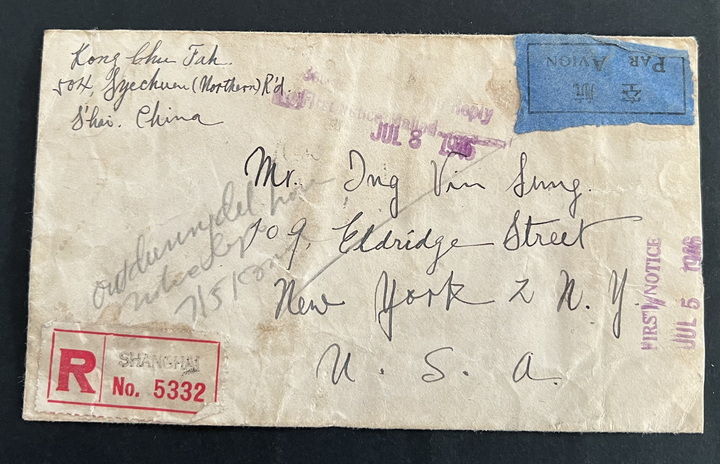 Kong Chu Fah
504, Szechuen (Northern) R'd.
S'hai. China
航空
PAR AVION
JUL 8 1946
Mr. Ing Vin Sung.
109, Eldridge Street
New York 2 N.Y.
U. S. A.
FIRST NOTICE
JUL 5 1946
notice left
R
SHANGHAI
No. 5332